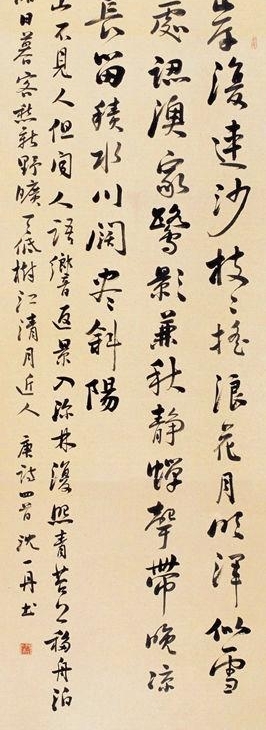 岸復連沙枝々搖浪花月明渾似雪
處認漁家鷺影兼秋靜蟬聲帶晚涼
長留積水川闊盡斜陽
山不見人但聞人語響返景入深林復照青苔上移舟泊
日暮客愁新野曠天低樹江清月近人 唐詩四首 沈一丹书